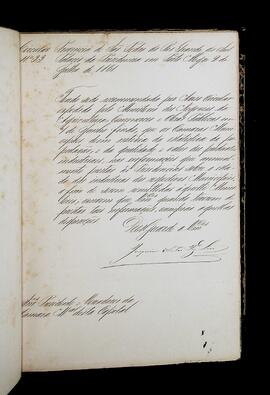 Circular Provincia de São Pedro do Rio Grande do Sul
Nº 33 Palacio da Presidencia em Porto Alegre 2 de
Julho de 1861
Tendo sido recommendado por Aviso Circular
expedido pelo Ministerio dos Negocios da
Agricultura, Commercio e Obras Publicas em
de Junho findo, que as Camaras Muni-
cipaes dêem noticia da estatistica da po-
pulação, e da qualidade e valor dos productos
industriaes, nas informações que annual-
mente prestão ás Presidencias sobre o esta-
do da industria dos respectivos Municipios,
a fim de serem remettidas áquelle Minis-
terio, cumpre que Vmces quando houverem de
prestar taes informações, cumprão a 
disposição.
Deus Guarde a Vmces
Joaquim Antão
Snrs. Presidente e Vereadores da
Camara Mal desta Capital